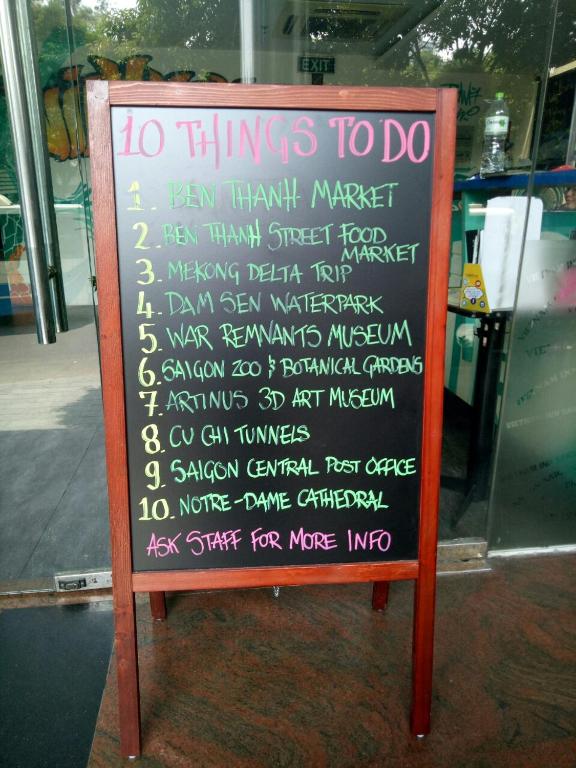 EXIT
10 THINGS TO DO
1. BEN THANH MARKET
2. BEN THANH STREET FOOD
MARKET
3. MEKONG DELTA TRIP
4. DAM SEN WATERPARK
5. WAR REMNANTS MUSEUM
6. SAIGON ZOO & BOTANICAL GARDENS
7. ARTINUS 3D ART MUSEUM
8. CU CHI TUNNELS
9. SAIGON CENTRAL POST OFFICE
10. NOTRE-DAME CATHEDRAL
ASK STAFF FOR MORE INFO